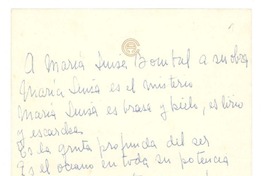 A María Luisa Bombal a su obra
María Luisa es el misterio
María Luisa es brasa y hielo, es lirio
y escarcha
Es la gruta profunda del ser
Es el océano en toda su potencia